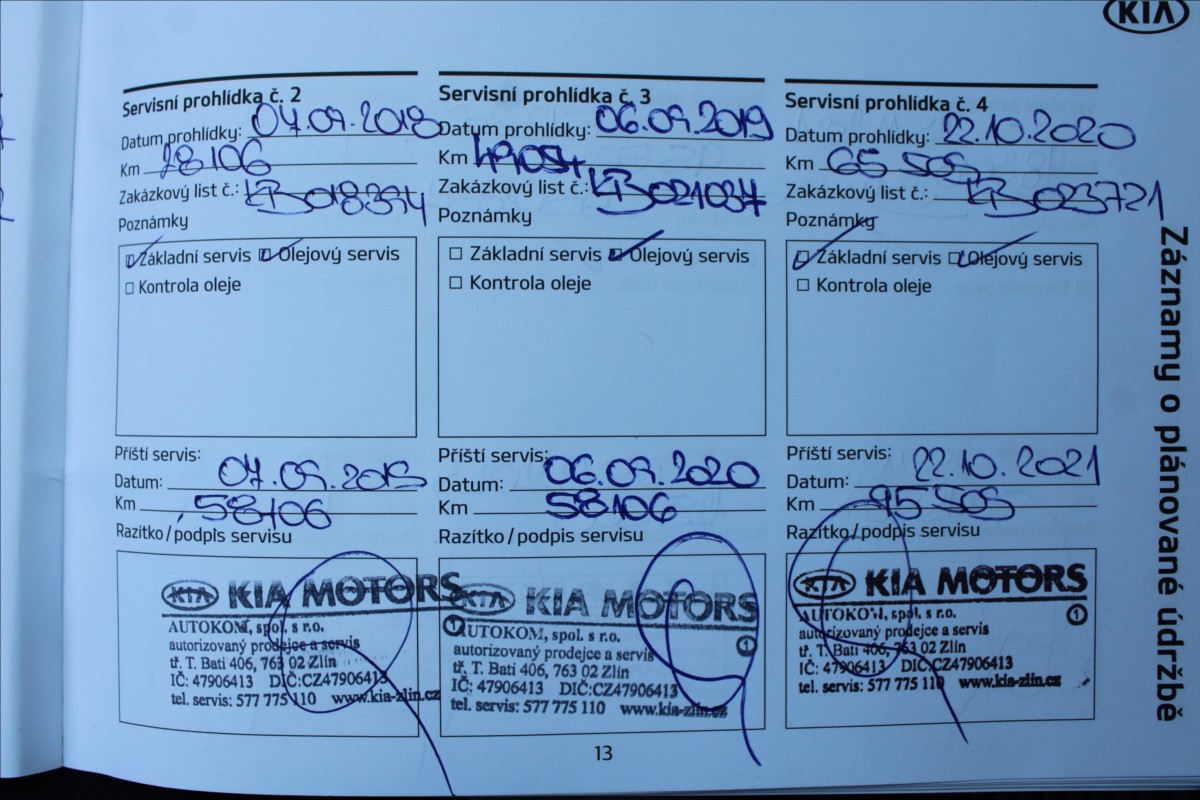 KIA
Servisní prohlídka č. 2
Datum prohlídky: 04.09.2018
Km 28106
Zakázkový list č.:
Poznámky
Základní servis Olejový servis
Kontrola oleje
Příští servis:
Datum: 07.09.2019
Km 58106
Razítko/podpis servisu
KIA KIA MOTORS
AUTOKOM, spol. s r.o.
autorizovaný prodejce a servis
tř. T. Bati 406, 763 02 Zlín
IČ: 47906413 DIČ:CZ47906413
tel. servis: 577 775 110 www.kia-zlin.cz
Servisní prohlídka č. 3
Datum prohlídky: 06.09.2019
Km 49054
Zakázkový list č.:
Poznámky
Základní servis Olejový servis
Kontrola oleje
Příští servis:
Datum: 06.09.2020
Km 58106
Razítko/podpis servisu
KIA KIA MOTORS
1
AUTOKOM, spol. s r.o.
autorizovaný prodejce a servis
1
tř. T. Bati 406, 763 02 Zlín
IČ: 47906413 DIČ:CZ47906413
tel. servis: 577 775 110 www.kia-zlin.cz
Servisní prohlídka č. 4
Datum prohlídky: 22.10.2020
Km 65 505
Zakázkový list č.:
Poznámky
Základní servis Olejový servis
Kontrola oleje
Příští servis:
Datum: 22.10.2021
Km 95 505
Razítko/podpis servisu
KIA KIA MOTORS
AUTOKOM, spol. s r.o.
1
autorizovaný prodejce a servis
tř. T. Bati 406, 763 02 Zlín
IČ: 47906413 DIČ:CZ47906413
tel. servis: 577 775 110 www.kia-zlin.cz
Záznamy o plánované údržbě
13